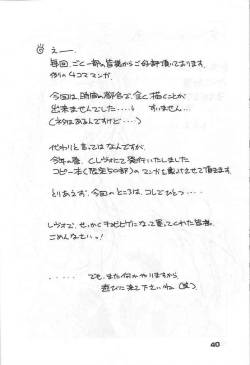 えー
毎回、ごく一部の皆様からご好評頂いております。
例の4コママンガ。
今回は時間の都合で全く描くことが
出来ませんでした・・・・ すいません…
(ネタはあるんですけど・・・・)
代わりと言ってはなんですが、
今年の春、Cレヴォにて発行いたしました
コピー本(限定50部)のマンガを載せさせて頂きます。
とりあえず、今回のところは、コレでひとつ・・・・
レヴォで、せっかく になって買ってくれた皆様、
ごめんなさいっ!
・・・・・ でも、また何かやりますから
遊びに来て下さいね(笑)
40